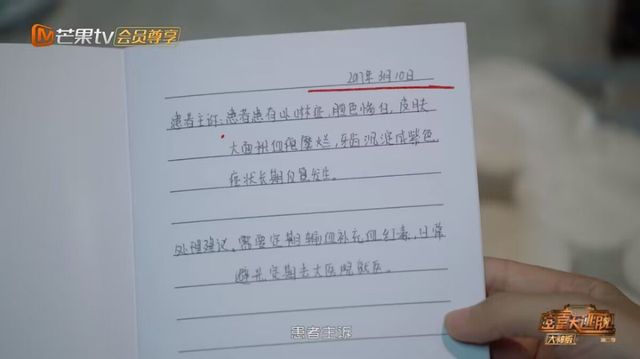 芒果tv 会员尊享
2017年3月10日
患者主诉:患者患有卟啉症,脸色惨白,皮肤
大面积糜烂,牙齿沉淀成紫色
症状长期发生。
处理建议:需要定期输血补充血红素,日常
避免定期去大医院就医。
患者主诉
密室大逃脱
大神版 第二季